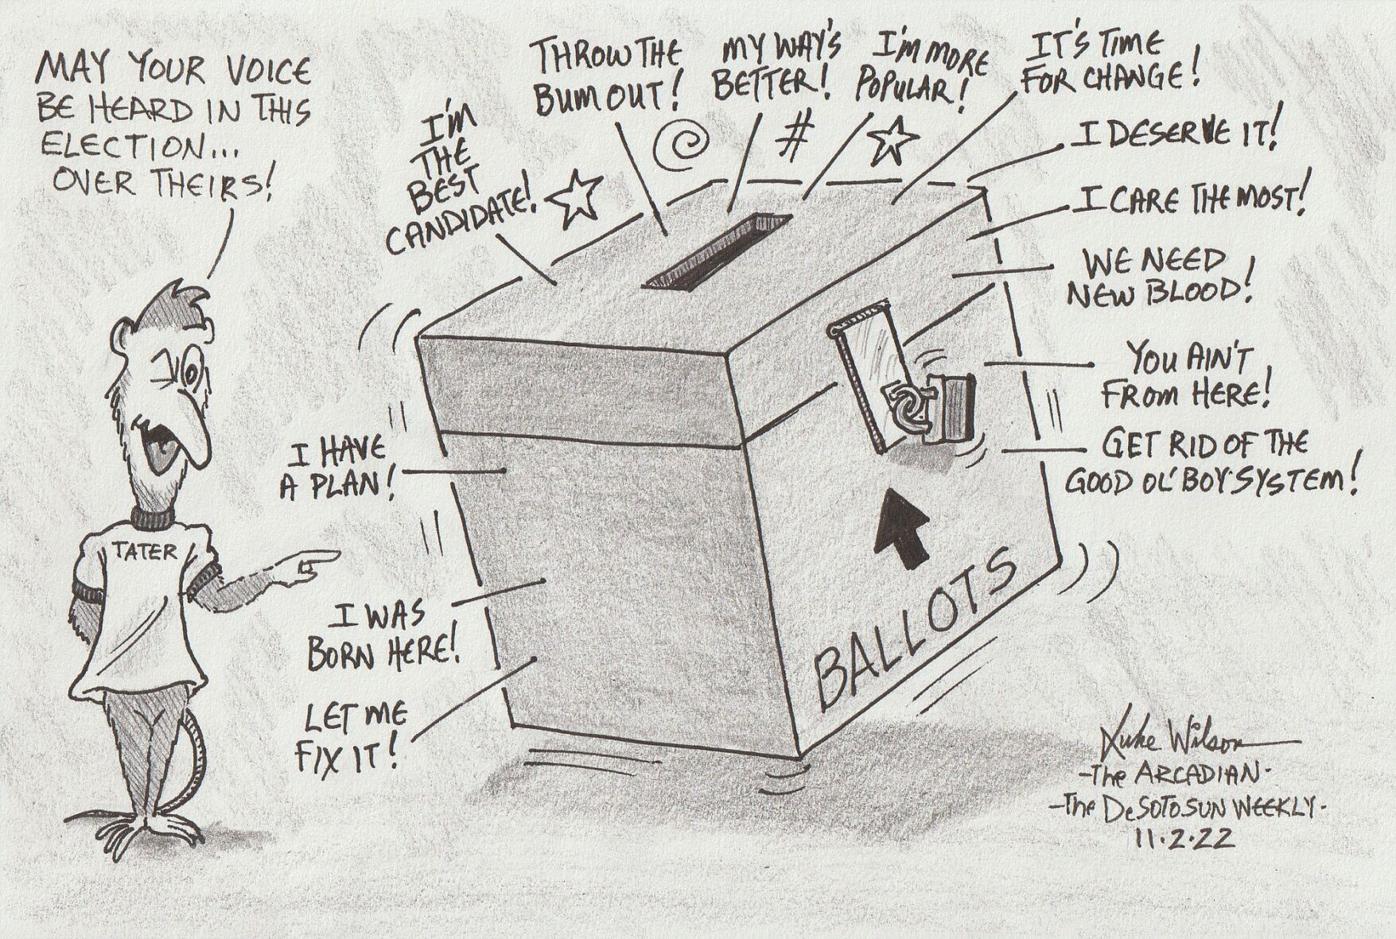 MAY YOUR VOICE
BE HEARD IN THIS
ELECTION...
OVER THEIRS!
I'M
THE
BEST
CANDIDATE!
THROW THE
BUM OUT!
MY WAY'S
BETTER!
I'M MORE
POPULAR!
IT'S TIME
FOR CHANGE!
I DESERVE IT!
I CARE THE MOST!
WE NEED
NEW BLOOD!
YOU AIN'T
FROM HERE!
GET RID OF THE
GOOD OL' BOY SYSTEM!
I HAVE
A PLAN!
I WAS
BORN HERE!
LET ME
FIX IT!
#
TATER
BALLOTS
Luke Wilson
-The ARCADIAN-
-The DeSOTO SUN WEEKLY-
11·2·22